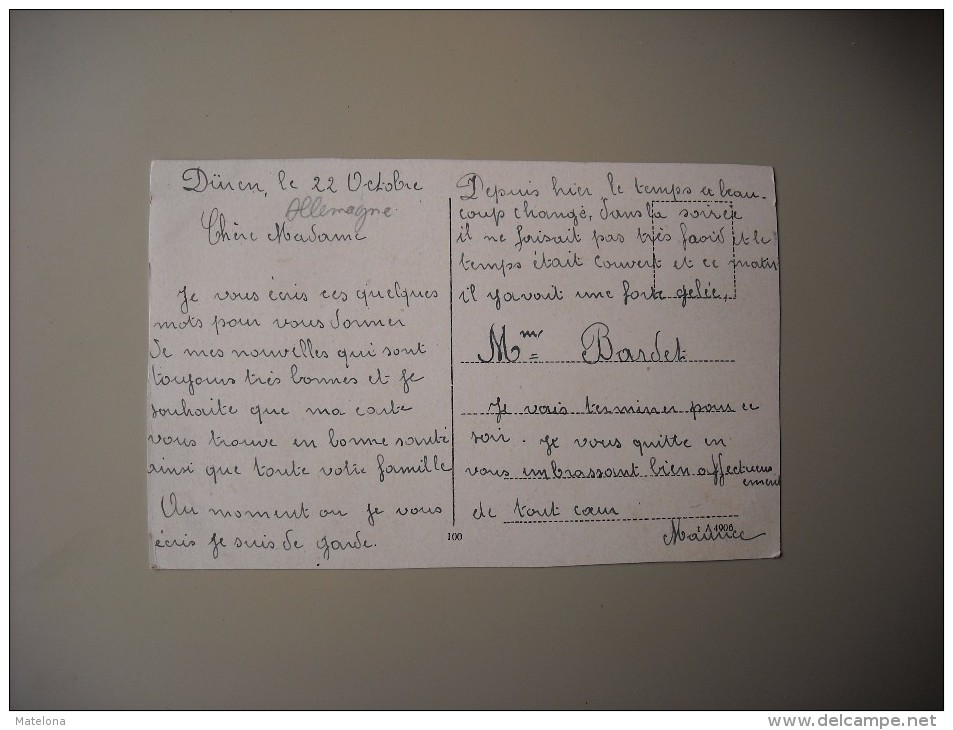 Düren, le 22 Octobre
Allemagne
Chère Madame
Je vous écris ces quelques
mots pour vous donner
de mes nouvelles qui sont
toujours très bonnes et je
souhaite que ma carte
vous trouve en bonne santé
ainsi que toute votre famille
Au moment ou je vous
écris je suis de garde.
Depuis hier le temps a beau-
coup changé, dans la soirée
il ne faisait pas très froid et le
temps était couvert et ce matin
il y avait une forte gelée,
Mme Bardet
Je vais terminer pour ce
soir. Je vous quitte en
vous embrassant bien affectueus
ement
de tout cœur
Maurice
100
1906
Matelona
www.delcampe.net